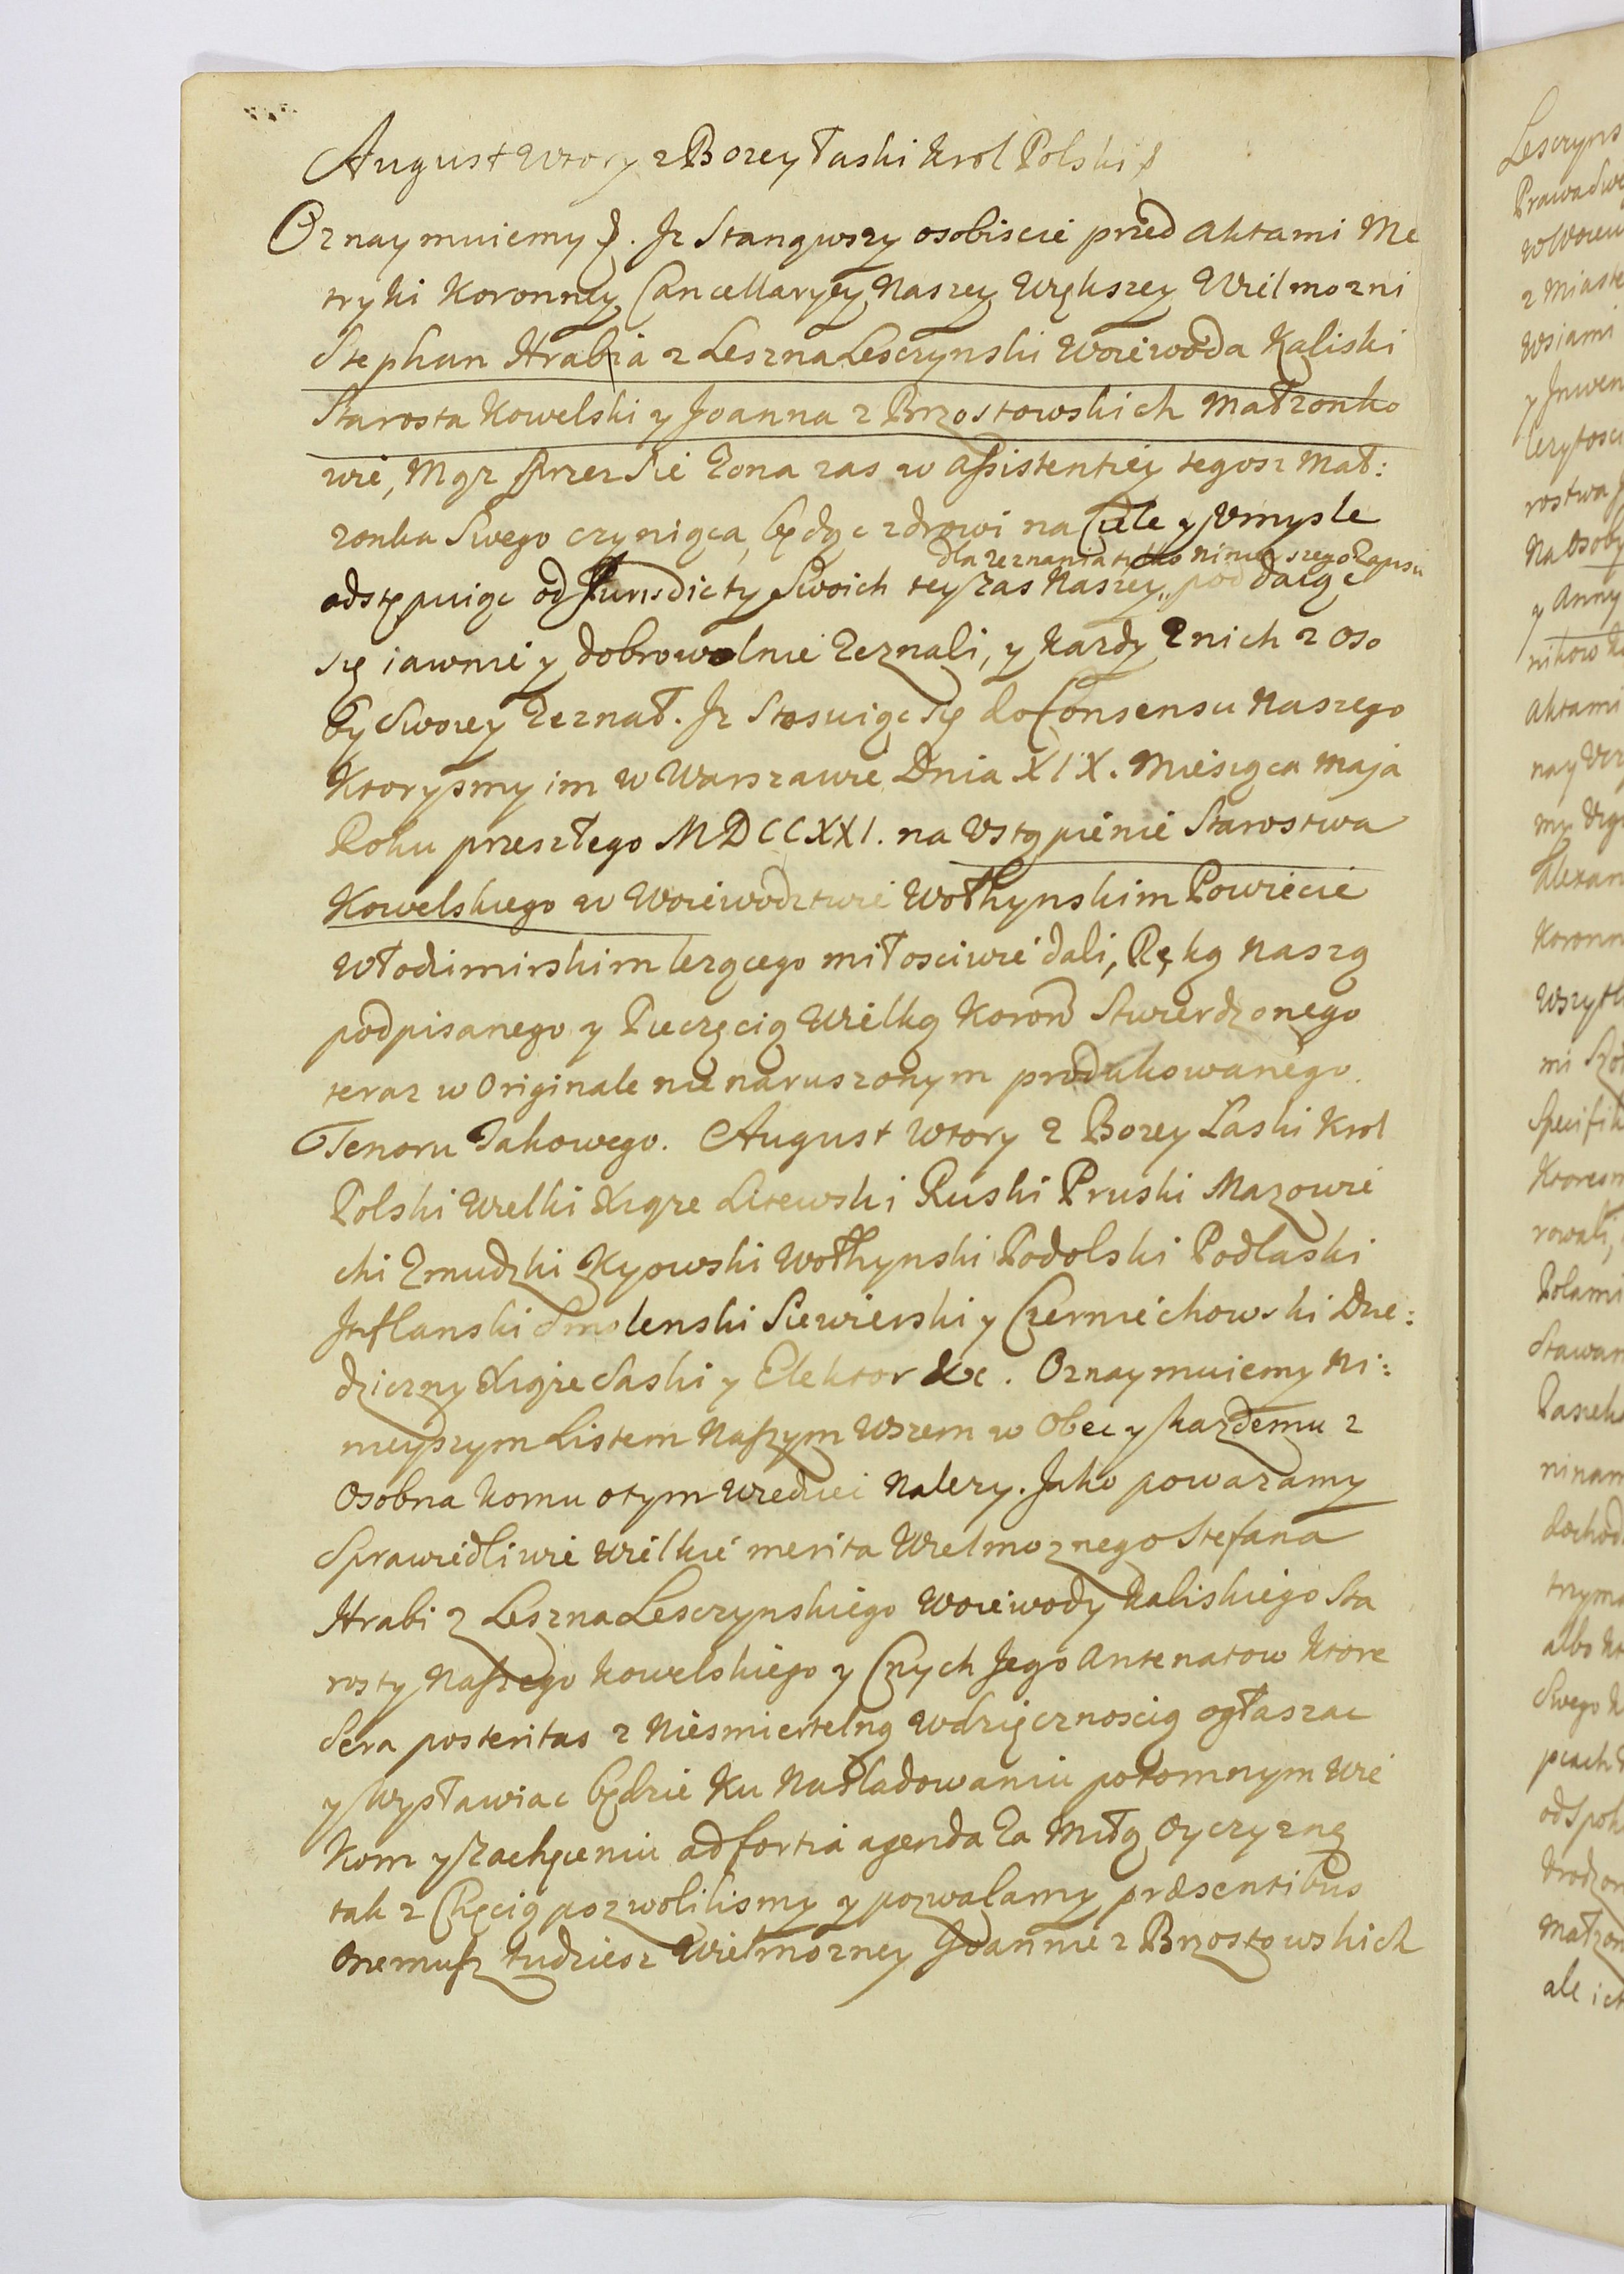 August Wtory z Bozey Łaski Krol Polski
Oznaymuiemy. Jz Stanąwszy osobiscie przed Aktami Me
tryki Koronney Cancellaryey Naszey Większey Wielmozni
Stephan Hrabia z Leszna Lesczynski Woiewoda Kaliski
Starosta Kowelski y Joanna z Brzostowskich Małzonko
wie, Mąz przez Sie Zona zas w Assistentiey tegosz Mał:
zonka Swego czyniąca, będąc zdrowi na Ciele y Vmysle
dla zeznania tylko ninieyszego Zapisu
odstępuiąc od Jurisdicty Swoich teyzas Naszey,, poddaiąc
się iawnie y dobrowolnie Zeznali, y kazdy Znich z Oso
by Swoiey Zeznał. Jz Stosuiąc się do Consensu Naszego
Ktorysmy im w Warszawie Dnia XIX. Miesiąca Maja
Roku przeszłego MDCCXXI. na Vstąpienie Starostwa
Kowelskiego w Woiewodztwie Wołhynskim Powiecie
Włodzimirskim lezącego miłosciwie dali, Ręką Naszą
podpisanego y Pieczęcią Wielką Koron Stwierdzonego
teraz w Originale nie naruszonym produkowanego.
Tenoru Takowego. August Wtory z Bozey Laski Krol
Polski Wielki Xiąze Litewski Ruski Pruski Mazowie
cki Zmudzki Kyowski Wołhynski Podolski Podlaski
Jnflanski Smolenski Siewierski y Czerniechowski Dzie:
dziczny Xiąze Saski y Elektor &c. Oznaymuiemy Ni:
nieyszym Listem Naszym Wszem w Obec y kazdemu z
Osobna komu otym Wiedziec Nalezy. Jako powazamy
Sprawiedliwie Wielkie merita Wielmoznego Stefana
Hrabi z Leszna Lesczynskiego Woiewody Kaliskiego Sta
rosty Naszego Kowelskiego y Cnych Jego Antenatow ktore
Sera posteritas z Niesmiertelną Wdzięcznoscią ogłaszac
y Wysławiac będzie Ku Nasladowaniu potomnym Wie
kom y Zachęceniu ad fortia agenda Za Miłą Oyczyznę
tak z Chęcią pozwolilismy y pozwalamy præsentibus
Onemusz tudziesz Wielmozney Joannie z Brzostowskich